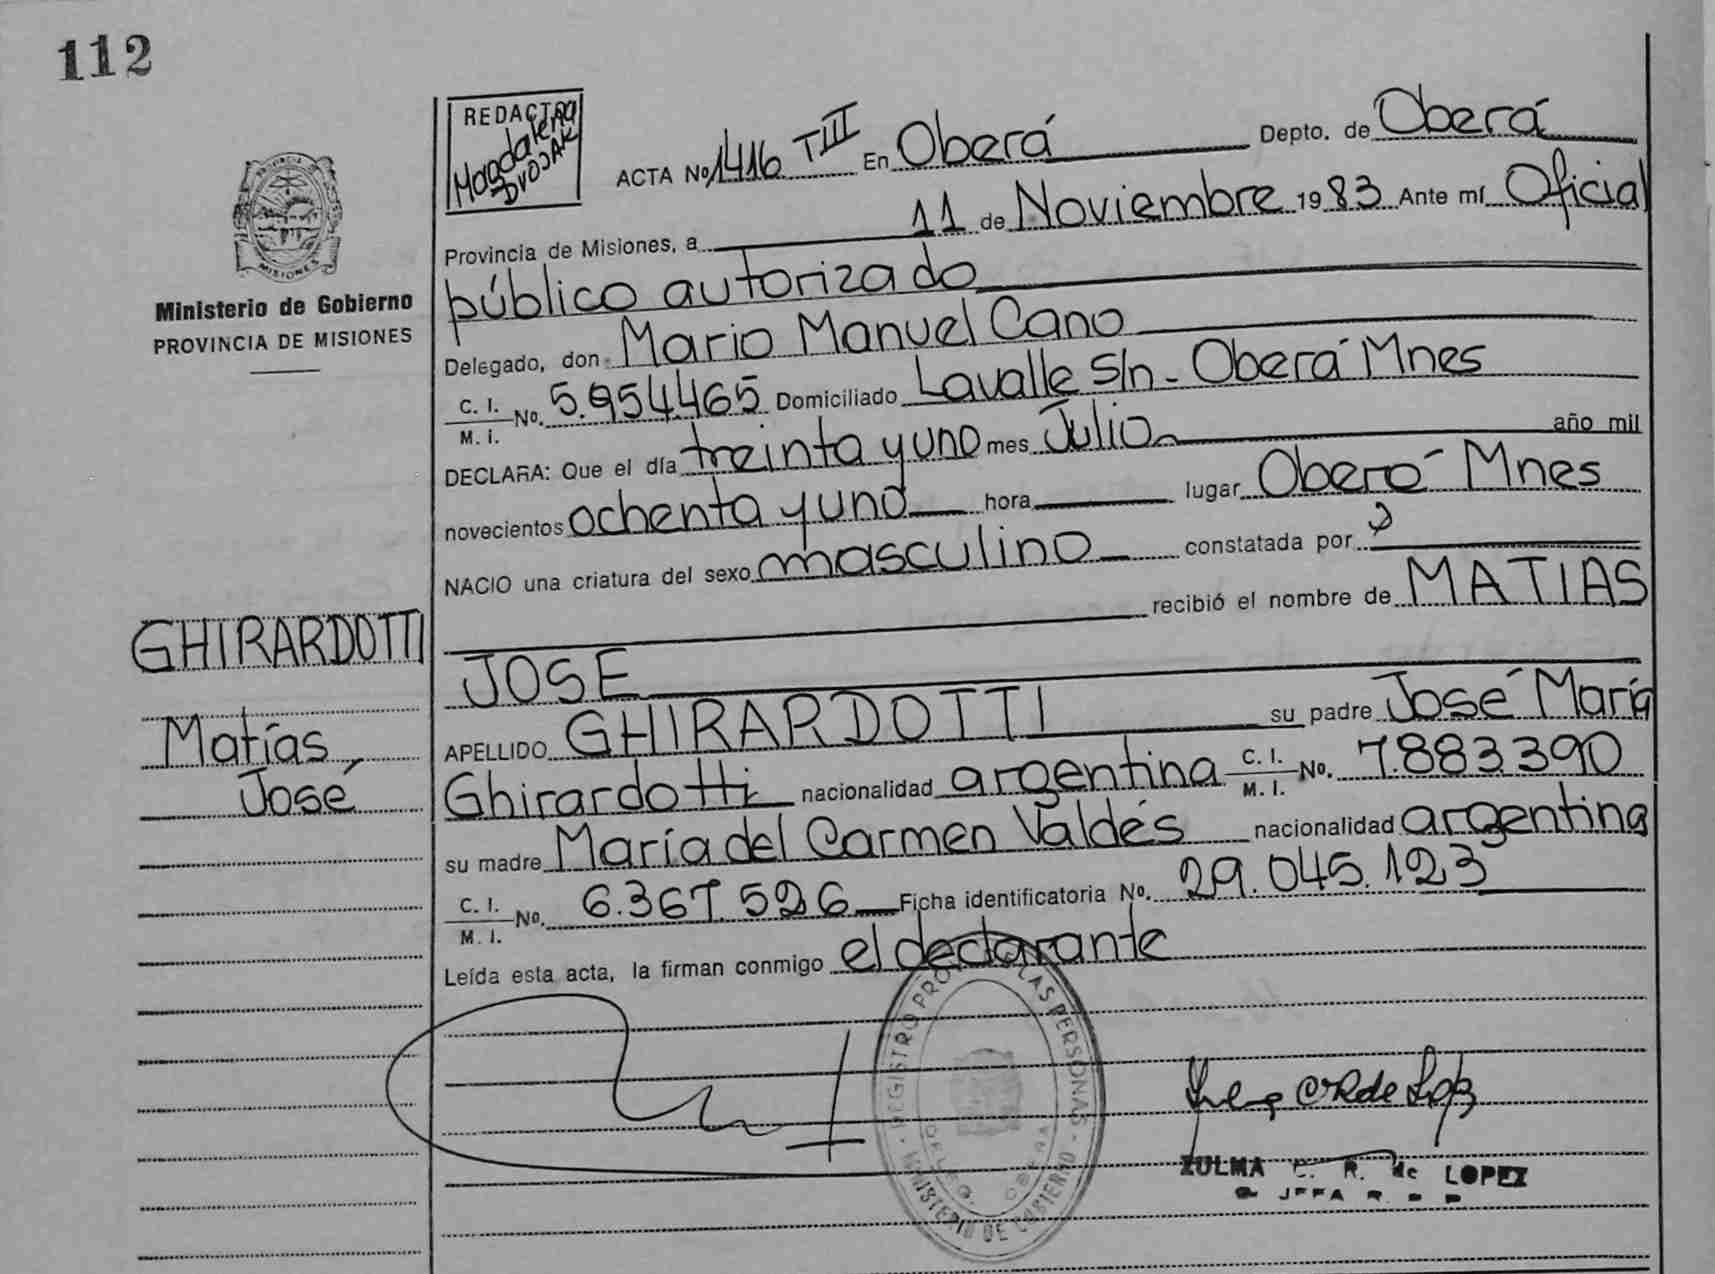 112
REDACTRA
Magdalena
DVOJAK
ACTA No 1416 TIII En Oberá Depto. de Oberá
Provincia de Misiones, a 11 de Noviembre 1983 Ante mí Oficial
público autorizado
Delegado, don Mario Manuel Cano
C. I. M. I. No. 5.954.465 Domiciliado Lavalle s/n - Oberá Mnes
DECLARA: Que el día treinta y uno mes Julio año mil
novecientos ochenta y uno hora lugar Oberá Mnes
NACIO una criatura del sexo masculino constatada por
recibió el nombre de MATIAS
JOSE
APELLIDO GHIRARDOTTI su padre José María
Ghirardotti nacionalidad argentina C. I. M. I. No. 7.883.390
su madre María del Carmen Valdés nacionalidad argentina
C. I. M. I. No. 6.367.526 Ficha identificatoria No. 29.045.123
Leída esta acta, la firman conmigo el declarante
MISIONES
Ministerio de Gobierno
PROVINCIA DE MISIONES
GHIRARDOTTI
Matías
José
REGISTRO LAS PERSONAS
MINISTERIO DE GOBIERNO
OBERA
ZULMA C. R. de LOPEZ